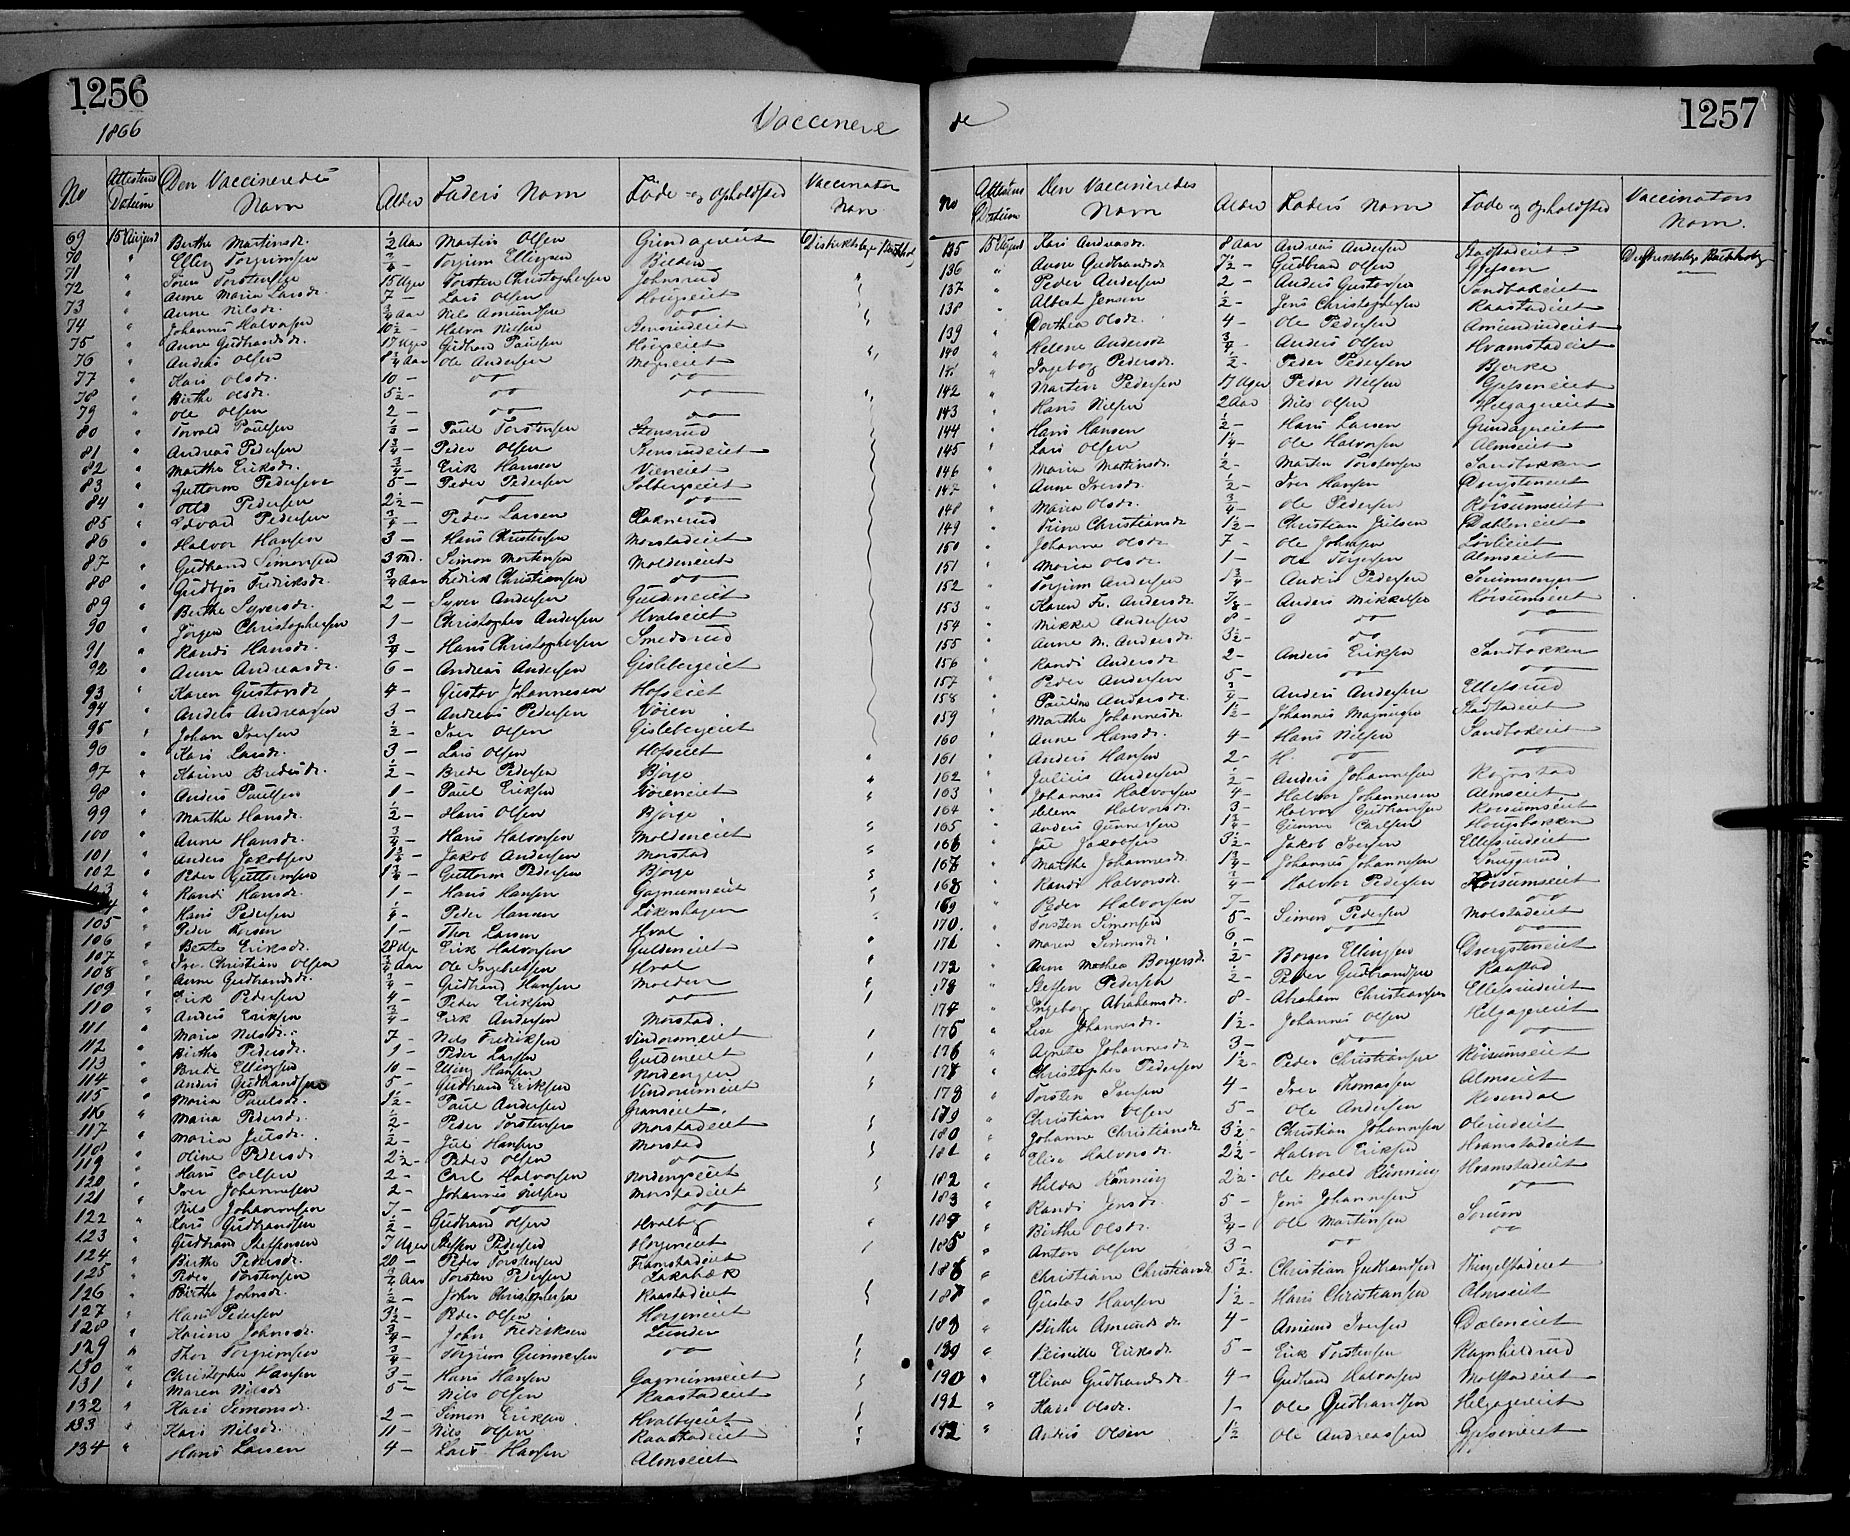 1256
1866
Vaccinere
No | Attestens Datum | Den Vaccineredes Navn | Alder | Faders Navn | Føde- og Opholdsted | Vaccinator Navn
69 | 15 August | Berthe Martinsdr. | ½ Aar | Martin Olsen | Grindagereiet | Distriktslæge
70 | " | Elling Torgrimsen | ¾ — | Torgrim Ellingsen | Bilden
71 | " | Søren Torstensen | 15 Uger | Torsten Christophersen | Johnsrud
72 | " | Anne Maria Larsdr. | 7 — | Lars Olsen
73 | " | Anne Nilsdr. | ¾ Aar | Nils Amundsen | " "
74 | " | Johannes Halvorsen | 10½ — | Halvor Nilsen | Stensrudeiet
75 | " | Anne Gudbrandsdr. | 17 Uger | Gudbrand Paulsen
76 | " | Anders Olsen | 8¾ Aar | Ole Andersen
77 | " | Kari Olsdr. | 10 — | " " | " "
78 | " | Birthe Olsdr. | 5½ — | " "
79 | " | Ole Olsen | 2 — | " " | " "
80 | " | Torvald Paulsen | ⅓ — | Paul Torstensen | Stensrud
81 | " | Andreas Pedersen | 1¾ — | Peder Olsen | Stensrudeiet
82 | " | Marthe Eriksdr. | ¾ — | Erik Hansen | Vieneiet
83 | " | Guttorm Pedersen | 5 — | Peder Pedersen | Solbergseiet
84 | " | Otto Pedersen | 2½ — | " " | " "
85 | " | Edvard Pedersen | ¾ — | Peder Larsen | Raknerud
86 | " | Halvor Hansen | 3 — | Hans Christensen | Morstadeiet
87 | " | Gudbrand Simonsen | 3 Md. | Simon Mortensen | Moldeneiet
88 | " | Gudbjør Fredriksdr. | ¾ Aar | Fredrik Christiansen | " "
89 | " | Berthe Syversdr. | 2 — | Syver Andersen | Guldeneiet
90 | " | Jørgen Christophersen | 1 — | Christopher Andersen | Hvalseiet
91 | " | Randi Hansdr. | ¾ — | Hans Christophersen | Smedsrud
92 | " | Anne Andreasdr. | 6 — | Andreas Andersen | Gislebergeiet
93 | " | Karen Gustavsdr. | 4 — | Gustav Johannesen | Hofseiet
94 | " | Anders Andreassen | 3 — | Andreas Pedersen | Vøien
95 | " | Johan Iversen | ½ — | Iver Olsen | Gislebergeiet
96 | " | Kari Larsdr. | 3 — | Lars Olsen | Hofseiet
97 | " | Karine Bredesdr. | ½ — | Brede Pedersen | Bjørge
98 | " | Anders Paulsen | 1 — | Paul Eriksen | Vøieneiet
99 | " | Marthe Hansdr. | ½ — | Hans Olsen | Bjørge
100 | " | Anne Hansdr. | ¾ — | Hans Halvorsen | Moldeneiet
101 | " | Anders Jakobsen | 1¾ — | Jakob Andersen | Morstad
102 | " | Peder Guttormsen | 1¾ — | Guttorm Pedersen | Bjørge
103 | " | Randi Hansdr. | 1 — | Hans Hansen | Gagnumseiet
| " | Hans Pedersen | ¼ — | Peder Hansen | Løkenhagen
105 | " | Peder Torsen | 1 — | Thor Larsen | Hval
106 | " | Berte Eriksdr. | 28 Uger | Erik Halvorsen | Guldeneiet
107 | " | Iver Christian Olsen | ¾ Aar | Ole Ingebretsen | Hval
108 | " | Anne Gudbrandsdr. | ¾ — | Gudbrand Hansen | Molden
109 | " | Erik Pedersen | 4 — | Peder Eriksen | " "
110 | " | Anders Eriksen | ¾ — | Erik Andersen | Morstad.
111 | " | Maria Nilsdr. | 7 — | Nils Fredriksen | Vindorumeiet
112 | " | Birthe Pedersdr. | 1 — | Peder Larsen | Guldeneiet
113 | " | Brede Ellingsen | 10 — | Elling Hansen | Nordengen
114 | " | Anders Gudbrandsen | 5 — | Gudbrand Eriksen | Vindorumeiet
115 | " | Maria Paulsdr. | 1½ — | Paul Andersen | Granseiet
116 | " | Maria Pedersd. | ½ — | Peder Torstensen | Morstadeiet
117 | " | Maria Julsdr. | ½ — | Jul Hansen | Morstad
118 | " | Oline Pedersdr. | 2½ — | Peder Olsen | " "
119 | " | Hans Carlsen | 2 — | Carl Halvorsen | Nordengseiet
120 | " | Iver Johannesen | 2 — | Johannes Nilsen | Morstadeiet
121 | " | Nils Johannesen | 7 — | " " | " "
122 | " | Lars Gudbrandsen | ½ — | Gudbrand Olsen | Hvalby
123 | " | Gudbrand Steffensen | 7 Uger | Steffen Pedersen | Horgeneiet
124 | " | Birthe Pedersdr. | 20 — | Peder Torstensen | Framstadeiet
125 | " | Peder Torstensen | ¾ Aar | Torsten Pedersen | Laksbæk
126 | " | Birthe Johnsdr. | ½ — | John Christophersen | Raastadeiet
127 | " | Hans Pedersen | 3½ — | Peder Olsen | Horgeneiet
128 | " | Karine Johnsdr. | ¾ — | John Fredriksen | Lunder
129 | " | Thor Torgrimsen | ¾ — | Torgrim Gunnersen | " "
130 | " | Christopher Hansen | 3 — | Hans Hansen | Gagnumseiet
131 | " | Maren Nilsdr. | 5 — | Nils Olsen | Raastadeiet
132 | " | Kari Simonsdr. | 2 — | Simon Eriksen | Hvalbyeiet
133 | " | Kari Nilsdr. | 11 — | Nils Olsen | Raastadeiet
134 | " | Hans Larsen | 4 — | Lars Hansen | Almseiet
1257
de
No | Attestens Datum | Den Vaccineredes Navn | Alder | Faders Navn | Føde og Opholdsted | Vaccinators Navn
135 | 15 August | Kari Andreasdr. | 8 Aar | Andreas Andersen | Stadstadeiet | Distriktslæge
136 | " | Anne Gudbrandsdr. | 7½ — | Gudbrand Olsen | Gjefsen
137 | " | Peder Andersen | 2 — | Anders Gustavsen | Sandbakeiet
138 | " | Albert Jensen | ½ — | Jens Christophersen | Raastadeiet
139 | " | Dorthea Olsdr. | 4 — | Ole Pedersen | Amundrudeiet
140 | " | Helene Andersdr. | ¾ — | Anders Olsen | Hvamstadeiet
| " | Ingeborg Pedersdr. | ½ — | Peder Pedersen | Bjerke
142 | " | Martin Pedersen | 17 Uger | Peder Nilsen | Gjefseneiet
143 | " | Hans Nilsen | 2 Aar | Nils Olsen | Helgagereiet
144 | " | Hans Hansen | ½ — | Hans Larsen | Grindagereiet
145 | " | Lars Olsen | 1¼ — | Ole Halvorsen | Almseiet
146 | " | Maria Martinsdr. | ½ — | Martin Torstensen | Sandbakken
147 | " | Anne Iversdr. | ½ — | Iver Hansen | Dvergsteneiet
148 | " | Maria Olsdr. | ¾ — | Ole Pedersen | Røisumseiet
149 | " | Trine Christiansdr. | 1½ — | Christian Julsen | Dæhleneiet
150 | " | Johanne Olsdr. | 7 — | Ole Johnsen | Løvlieiet
151 | " | Maria Olsdr. | 1 — | Ole Torgersen | Almseiet
152 | " | Torgrim Andersen | 1¾ — | Anders Pedersen | Sørumsengen
153 | " | Karen Fr. Andersdr. | ⅞ — | Anders Mikkelsen | Røisumseiet
154 | " | Mikkel Andersen | 8 — | " " | " "
155 | " | Anne M. Andersdr. | 3½ — | " " | " "
156 | " | Randi Andersdr. | 2 — | Anders Eriksen | Sandbakken
157 | " | Peder Andersen | 5 — | " " | " "
158 | " | Pauline Andersdr. | ¾ — | Anders Andersen | Ellefsrud
159 | " | Marthe Johannesdr. | 1½ — | Johannes Magnusen | Stadstadeiet
160 | " | Anne Hansdr. | 4 — | Hans Nilsen | Sandbakeiet
161 | " | Anders Hansen | 2 — | H. " " | " "
162 | " | Julius Andersen | ½ — | Anders Johannesen
163 | " | Johannes Halvorsen | 4 — | Halvor Johannesen | Almseiet
164 | " | Helene Halvorsdr. | 3 — | Halvor Gudbrandsen | Røisumseiet
165 | " | Anders Gunnersen | 1¾ — | Gunner Carlsen | Haugsbakken
166 | " | Jakobsen | 3½ — | Jakob Iversen | Ellefsrudeiet
167 | " | Marthe Johannesdr. | 1¾ — | Johannes Johannesen | Snuggerud
168 | " | Randi Halvorsdr. | ¾ — | Halvor Pedersen | Røisumseiet
169 | " | Peder Halvorsen | 7 — | " " | " "
170. | " | Torsten Simonsen | 5 — | Simon Pedersen | Molstadeiet
171 | " | Maren Simonsdr. | 6 — | " " | " "
172 | " | Anne Mathea Borgersd. | ½ — | Borger Ellingsen | Dvergsteneiet
173 | " | Steffen Pedersen | ½ — | Peder Gudbrandsen | Raastad
174 | " | Ingeborg Abrahamsdr. | 8 — | Abraham Christiansen | Ellefsrudeiet
175 | " | Lise Johannesdr. | 1½ — | Johannes Olsen | Helgagereiet
176 | " | Agnete Johannesdr. | 3 — | " " | " "
177 | " | Christopher Pedersen | 1½ — | Peder Christiansen | Røisumseiet
178 | " | Torsten Iversen | 4 — | Iver Thomassen | Almseiet
179 | " | Christian Olsen | 5 — | Ole Andersen | Rosendal
180 | " | Johanne Christiansdr. | 3½ — | Christian Johannesen | Olerudeiet
181 | " | Elise Halvorsdr. | 2½ — | Halvor Eriksen | Hvamstadeiet
182 | " | Hilda Rønning | 2½ — | Ole Roald Rønning | Hvamstadeiet
183 | " | Randi Jensdr. | 5 — | Jens Johannesen | " "
184 | " | Birthe Olsdr. | ¾ — | Ole Martinsen | Sørum
185 | " | Anton Olsen | 3 — | " " | " "
186 | " | Christiane Christiansdr. | 5½ — | Christian Gudbrandsen
187 | " | Gustav Hansen | 1½ — | Hans Christiansen | Almseiet
188 | " | Birthe Amundsdr. | 4 — | Amund Iversen | Dæleneiet
189 | " | Pernille Eriksdr. | 5 — | Erik Torstensen | Ragnhildrud
190 | " | Elina Gudbrandsdr. | 4 — | Gudbrand Halvorsen | Molstadeiet
191 | " | Kari Olsdr. | 1 — | Ole Gudbrandsen | Helgagereiet
192 | " | Anders Olsen | 1½ | Ole Andreassen | Gjefseneiet